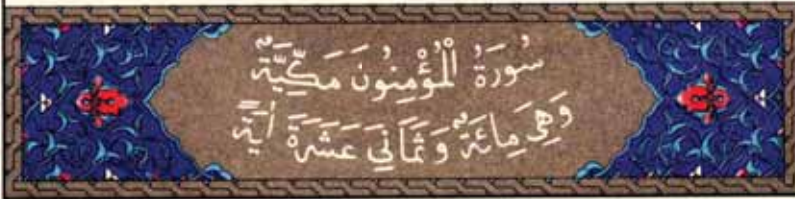 سُورَةُ الْمُؤْمِنُونَ مَكِّيَّةٌ
وَهِيَ مِائَةٌ وَثَمَانِيَ عَشَرَةَ اٰيَةً